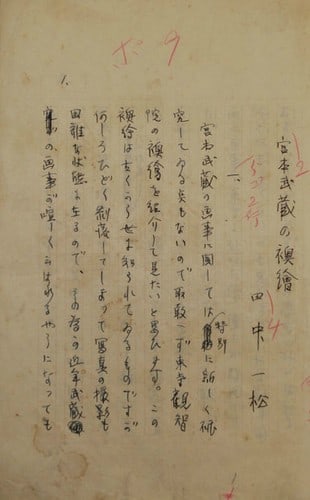 ポ9
宮本武蔵の襖繪
12
田中一松
14
一、
宮本武蔵の画事に関しては特別に新しく研
究してゐるもないので取敢へず東寺観智
院の襖繪を紹介して見たいと思ひます。この
襖繪は古くから世に知られてゐるものですが
何しろひどく剥落してしまつて寫真の撮影も
困難な状態に在るので、その為め近年武蔵
の画事が喧しく云はれるやうになつても